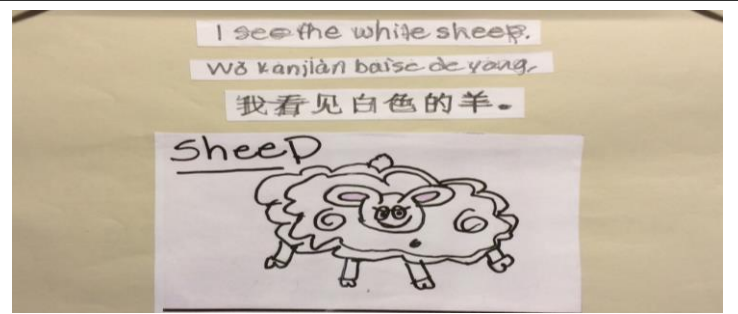 I see the white sheep.
Wǒ kanjiàn baise de yang.
我看见白色的羊。
sheep